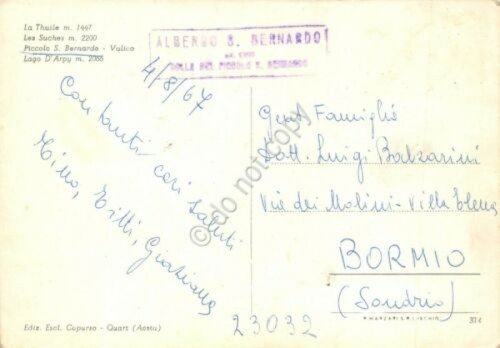 La Thuile m. 1447
Les Suches m. 2200
Piccolo S. Bernardo - Valico
Lago D'Arpy m. 2066
ALBERGO S. BERNARDO
COLLE DEL PICCOLO S. BERNARDO
4/8/67
Con tanti cari saluti
Titti, Graziana
Gent. Famiglia
Dott. Luigi Balzarini
Via dei Molini - Villa Elena
BORMIO
(Sondrio)
23032
Ediz. Escl. Capurso - Quart (Aosta)
do not copy